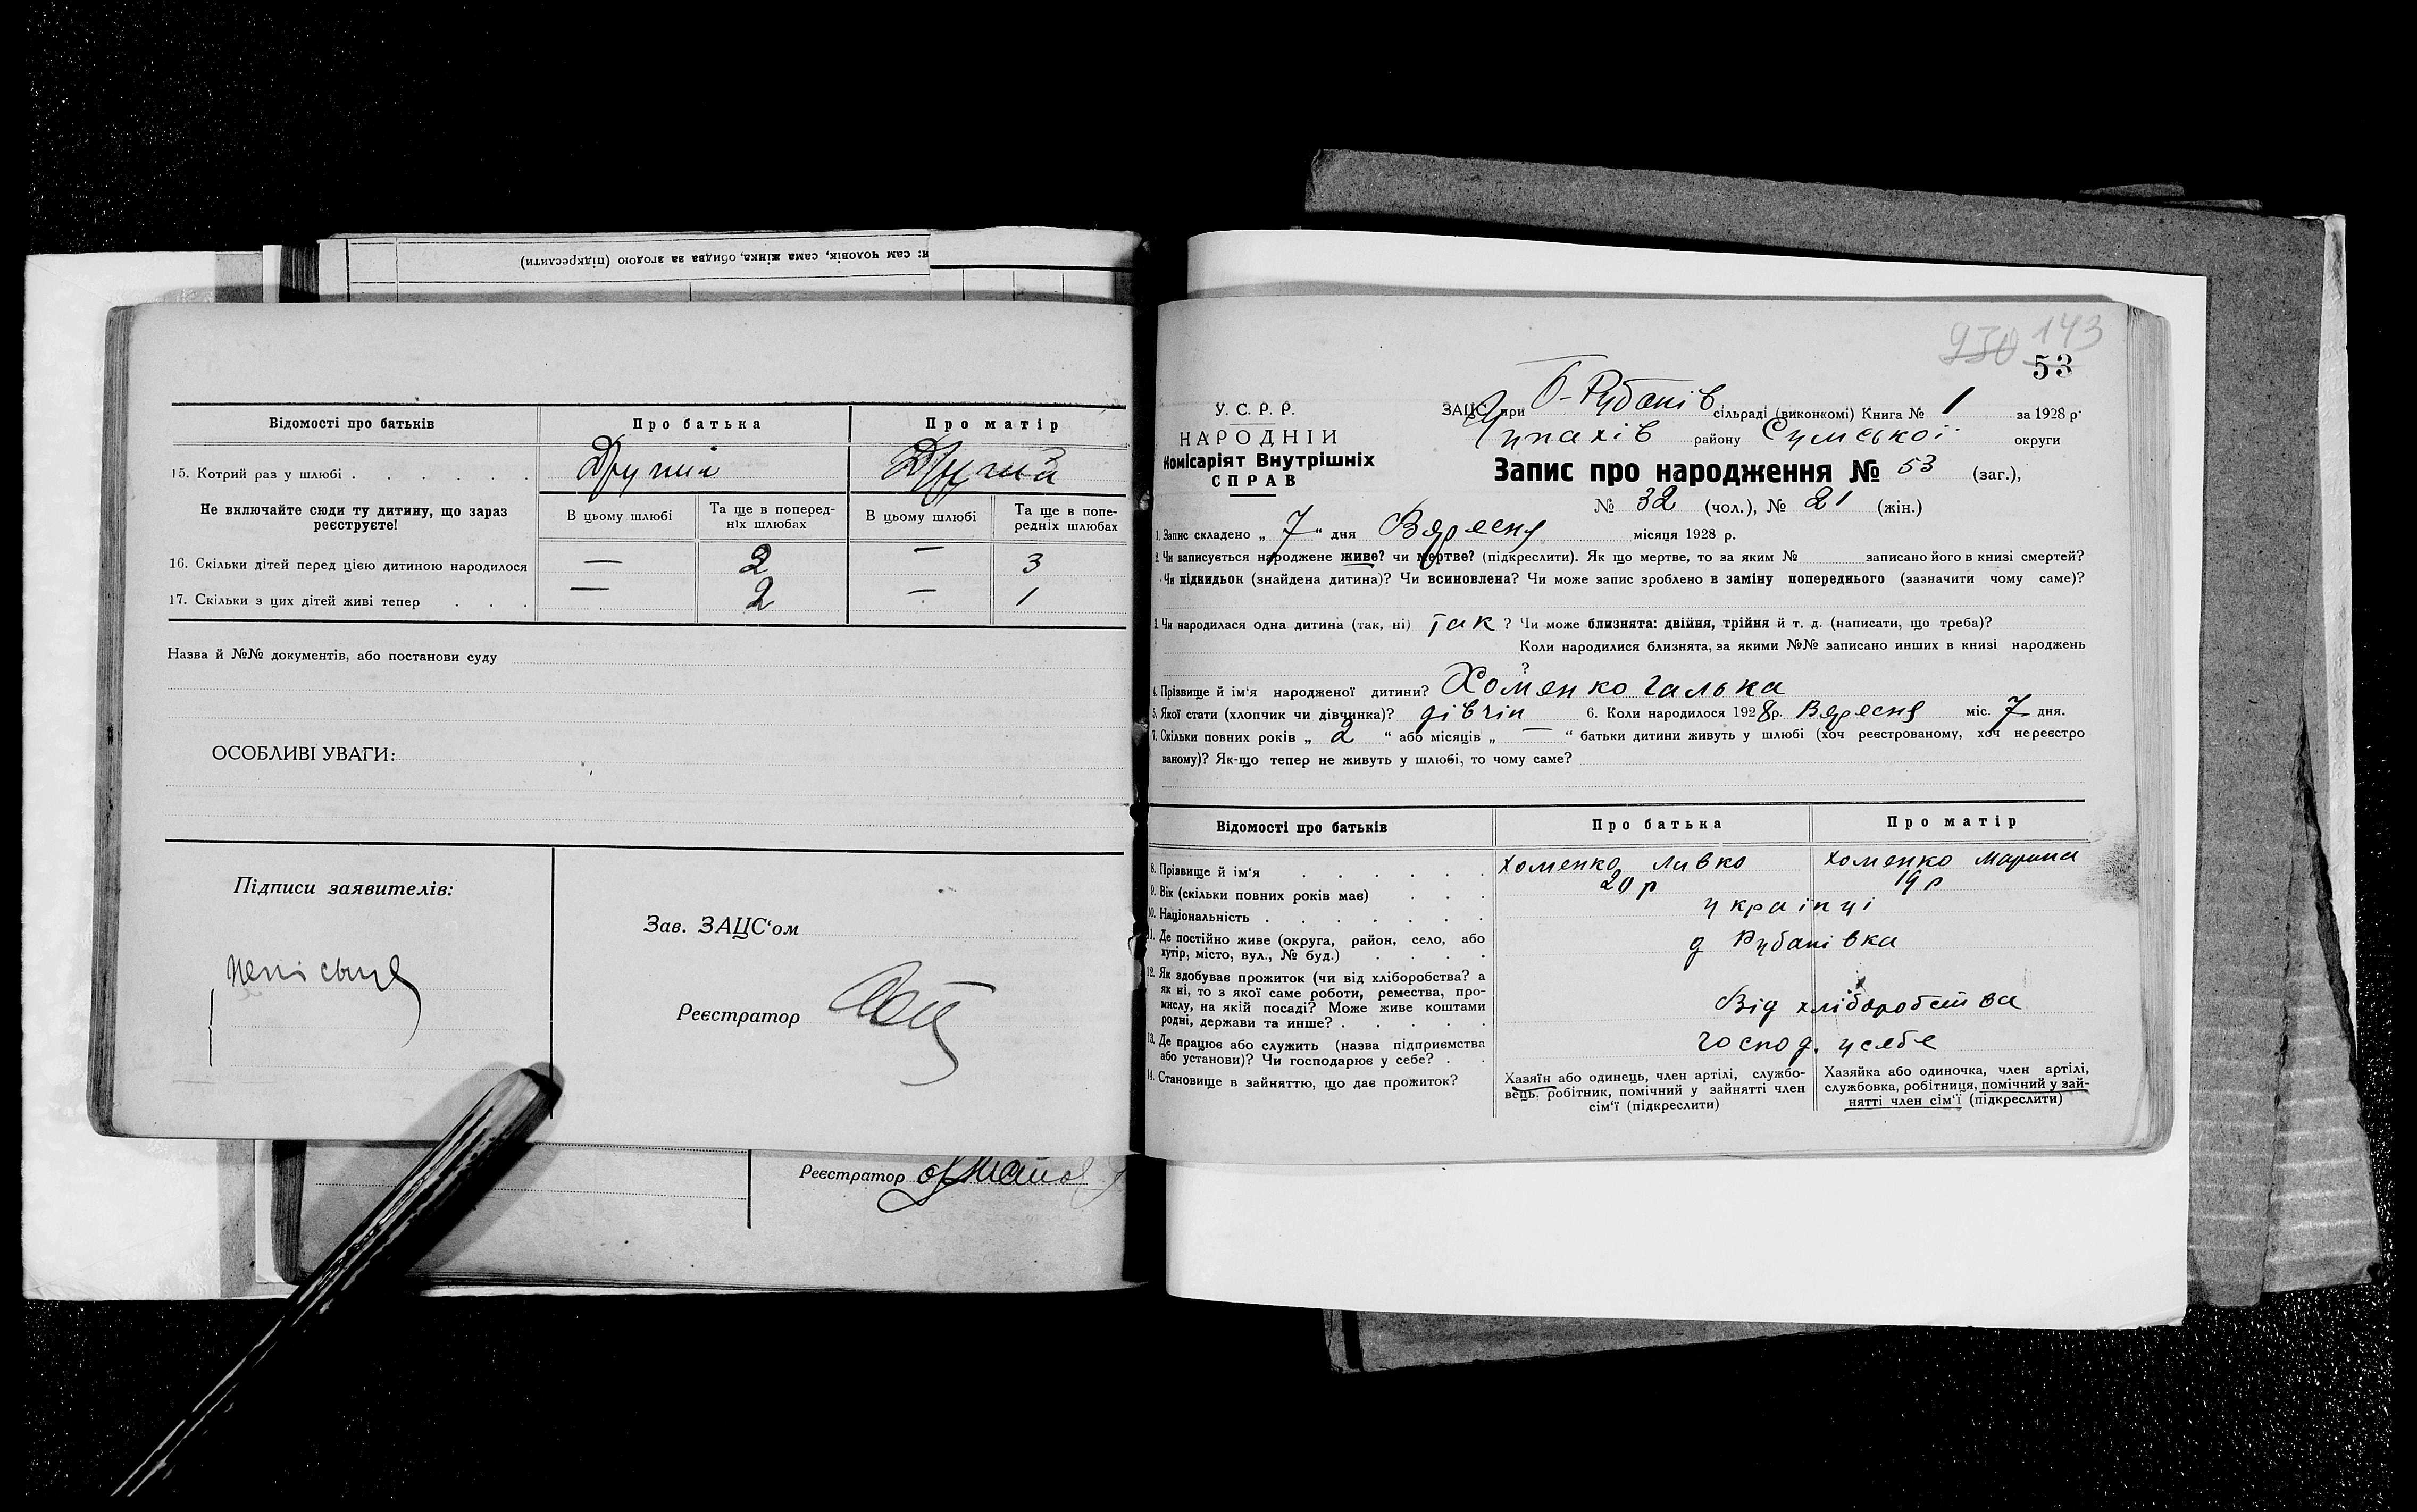 и: сам чоловік, сама жінка, обидва за згодою (підкреслити)
Відомості про батьків
Про батька
Про матір
15. Котрий раз у шлюбі . . . . . .
Другий
Другий
Не включайте сюди ту дитину, що зараз
реєструєте!
В цьому шлюбі
Та ще в поперед-
ніх шлюбах
В цьому шлюбі
Та ще в попе-
редніх шлюбах
16. Скільки дітей перед цією дитиною народилося
— 2 — 3
17. Скільки з цих дітей живі тепер . . .
— 2 — 1
Назва й №№ документів, або постанови суду
ОСОБЛИВІ УВАГИ:
Підписи заявителів:
Зав. ЗАЦС'ом
Реєстратор
Реєстратор
143
53
У. С. Р. Р.
НАРОДНІЙ
Комісаріят Внутрішніх
СПРАВ
ЗАЦС при Б-Рубанів сільраді (виконкомі) Книга № 1 за 1928 р.
Чупахів району Сумської округи
Запис про народження № 53 (заг.),
№ 32 (чол.), № 21 (жін.)
1. Запис складено „ 7 “ дня Вересня місяця 1928 р.
2. Чи записується народжене живе? чи мертве? (підкреслити). Як що мертве, то за яким № записано його в книзі смертей?
Чи підкидьок (знайдена дитина)? Чи всиновлена? Чи може запис зроблено в заміну попереднього (зазначити чому саме)?
3. Чи народилася одна дитина (так, ні) так ? Чи може близнята: двійня, трійня й т. д. (написати, що треба)?
Коли народилися близнята, за якими №№ записано инших в книзі народжень
?
4. Прізвище й ім'я народженої дитини? Хоменко Галька
5. Якої стати (хлопчик чи дівчинка)? дівчін 6. Коли народилося 1928 р. Вересня міс. 7 дня.
7. Скільки повних років „ 2 “ або місяців „ — “ батьки дитини живуть у шлюбі (хоч реєстрованому, хоч нереєстро
ваному)? Як-що тепер не живуть у шлюбі, то чому саме?
Відомості про батьків
Про батька
Про матір
8. Прізвище й ім'я . . . . . .
Хоменко Левко
Хоменко Марина
9. Вік (скільки повних років має) . . .
20 р
19 р
10. Національність . . . . . . .
українці
11. Де постійно живе (округа, район, село, або
хутір, місто, вул., № буд.) . . . .
д Рубанівка
12. Як здобуває прожиток (чи від хліборобства? а
як ні, то з якої саме роботи, ремества, про-
мислу, на якій посаді? Може живе коштами
родні, держави та инше? . . . . .
Від хліборобства
13. Де працює або служить (назва підприємства
або установи)? Чи господарює у себе? . .
господ. у себе
14. Становище в зайняттю, що дає прожиток?
Хазяїн або одинець, член артілі, службо-
вець, робітник, помічний у зайнятті член
сім'ї (підкреслити)
Хазяйка або одиночка, член артілі,
службовка, робітниця, помічний у зай-
нятті член сім'ї (підкреслити)